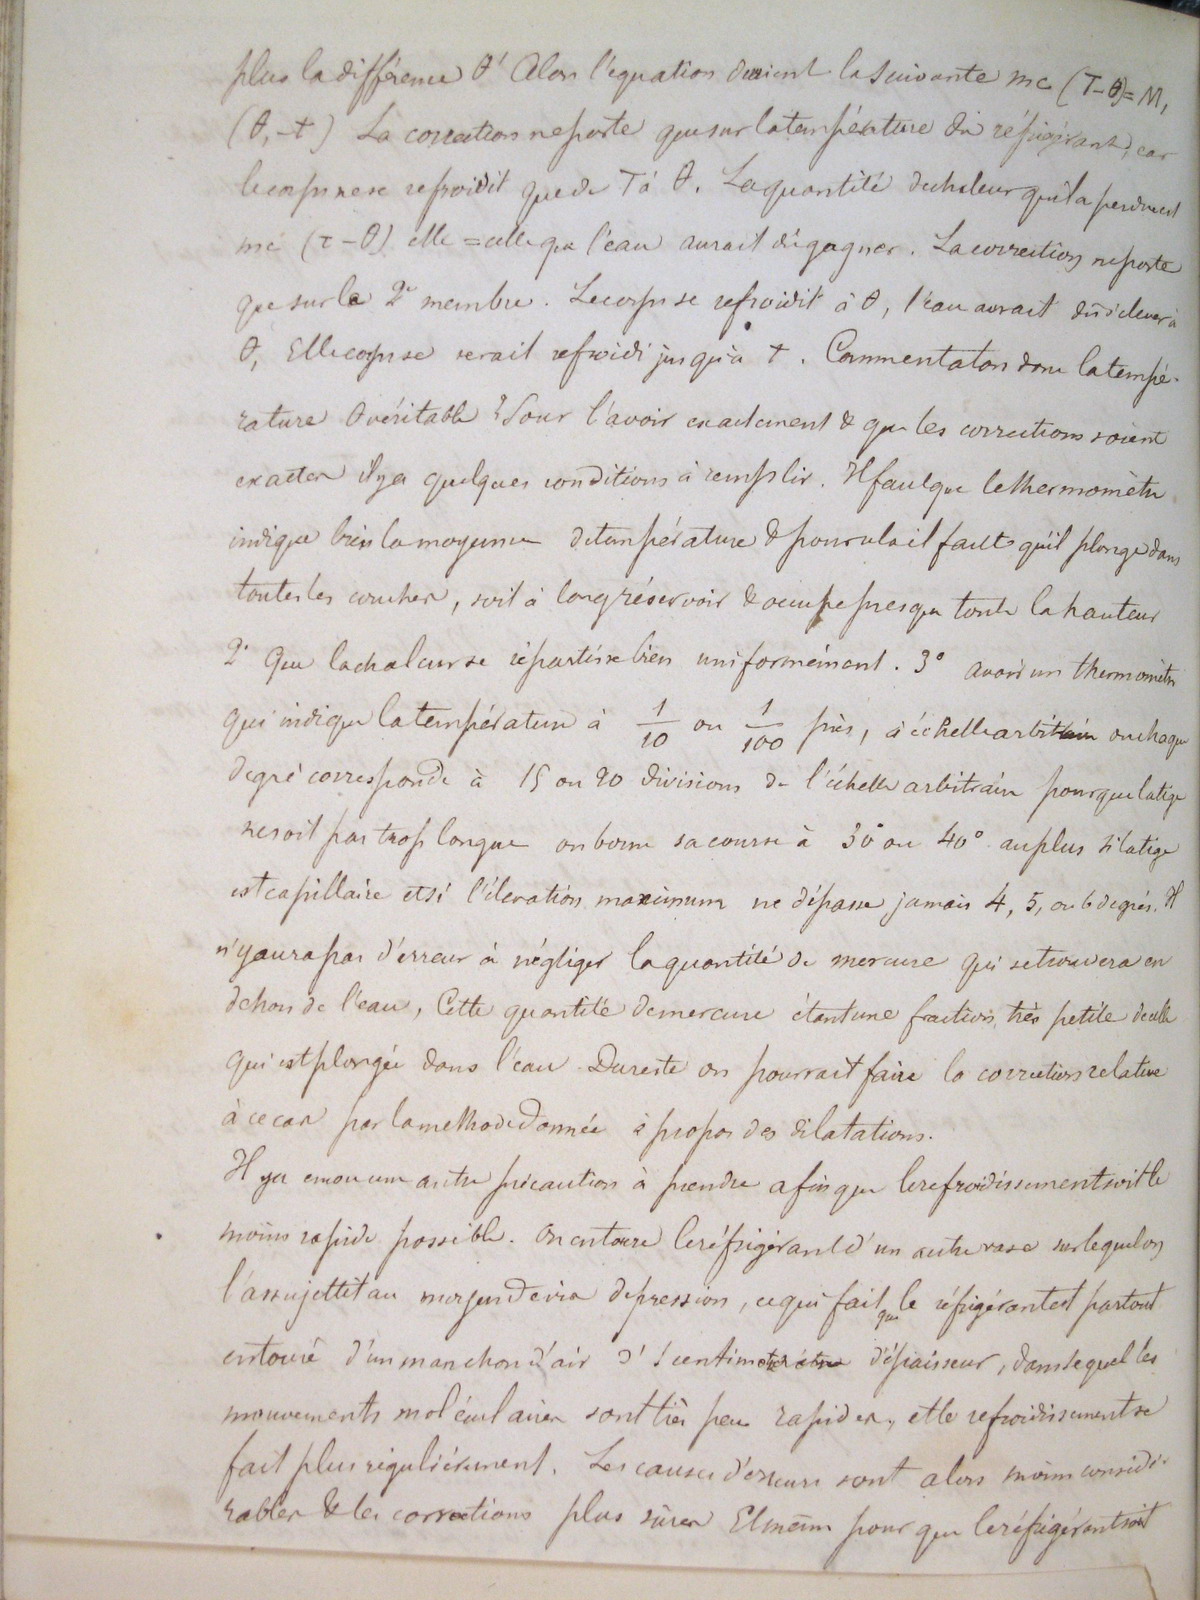 plus la différence θ' Alors l'équation devient la suivante mc (T-θ)= M,
(θ, -t) La correction ne porte que sur la température du réfrigérant, car
le corps ne se refroidit que de T à θ. La quantité de chaleur qu'il a perdue est
mc (τ-θ) elle = celle que l'eau aurait dû gagner. La correction ne porte
que sur le 2e membre. Le corps se refroidit à θ, l'eau aurait dû s'élever à
θ, Elle corps se serait refroidi jusqu'à t. Comment a t on donc la tempé-
rature θ véritable ? Pour l'avoir exactement & que les corrections soient
exactes il y a quelques conditions à remplir. Il faut que le thermomètre
indique bien la moyenne de température & pour cela il faut qu'il plonge dans
toutes les couches, soit à long réservoir & occupe presque toute la hauteur
2° Que la chaleur se répartisse bien uniformément. 3° avoir un thermomètre
qui indique la température à 1/10 ou 1/100 près, à échelle arbitraire ou chaque
degré corresponde à 15 ou 20 divisions de l'échelle arbitraire pour que la tige
ne soit pas trop longue on borne sa course à 30° ou 40° au plus si la tige
est capillaire et si l'élévation maximum ne dépasse jamais 4, 5, ou 6 degrés. Il
n'y aura pas d'erreur à négliger la quantité de mercure qui se trouvera en
dehors de l'eau, Cette quantité de mercure étant une fraction très petite de celle
qui est plongée dans l'eau. Du reste on pourrait faire la correction relative
à ce cas par la méthode donnée à propos des dilatations.
Il y a encore une autre précaution à prendre afin que le refroidissement soit le
moins rapide possible. On entoure le réfrigérant d'un autre vase sur lequel on
l'assujettit au moyen de vis de pression, ce qui fait que le réfrigérant est partout
entouré d'un manchon d'air d'1 centimètre d'épaisseur, dans lequel les
mouvements moléculaires sont très peu rapides, et le refroidissement se
fait plus régulièrement. Les causes d'erreurs sont alors moins considé-
rables & les corrections plus sûres Et même pour que le réfrigérant soit